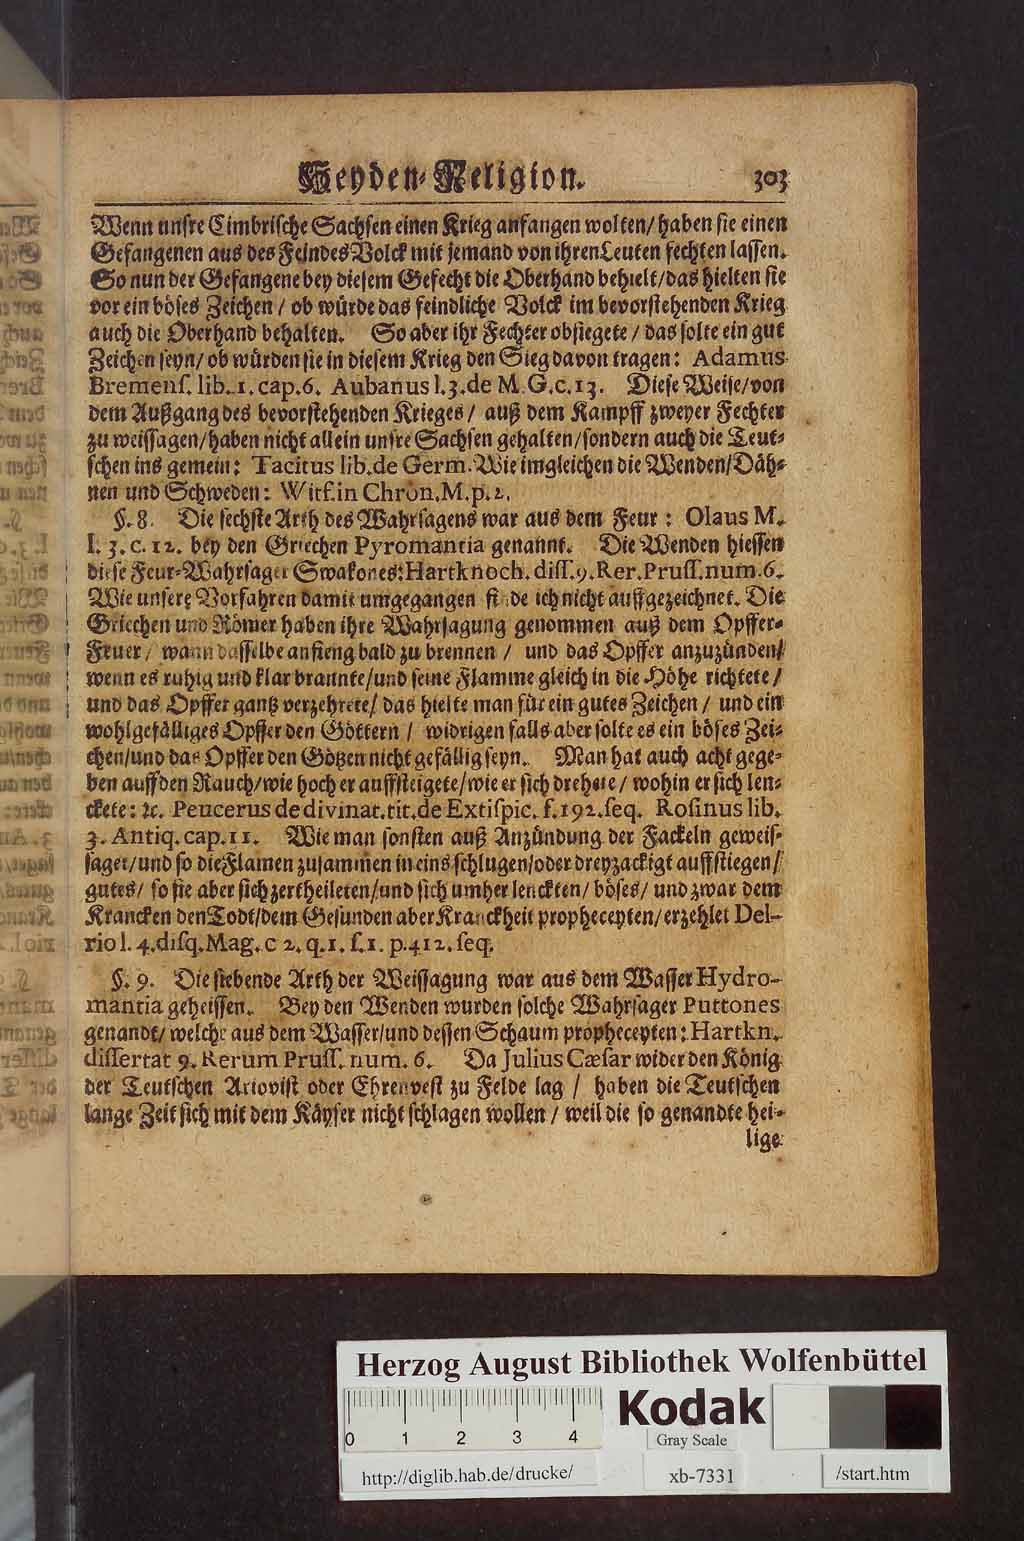 Heyden-Religion. 303
Wenn unsre Cimbrische Sachsen einen Krieg anfangen wolten/ haben sie einen
Gefangenen aus des Feindes Volck mit jemand von ihren Leuten fechten lassen.
So nun der Gefangene bey diesem Gefecht die Oberhand behielt/ das hielten sie
vor ein böses Zeichen / ob würde das feindliche Volck im bevorstehenden Krieg
auch die Oberhand behalten. So aber ihr Fechter obsiegete / das solte ein gut
Zeichen seyn/ ob würden sie in diesem Krieg den Sieg davon tragen: Adamus
Bremens. lib. 1. cap. 6. Aubanus l. 3. de M. G. c. 13. Diese Weise/ von
dem Außgang des bevorstehenden Krieges / auß dem Kampff zweyer Fechter
zu weissagen/ haben nicht allein unsre Sachsen gehalten/ sondern auch die Teut-
schen ins gemein: Tacitus lib. de Germ. Wie imgleichen die Wenden/ Däh-
nen und Schweden: Witf. in Chron. M. p. 2.
§. 8. Die sechste Arth des Wahrsagens war aus dem Feur : Olaus M.
l. 3. c. 12. bey den Griechen Pyromantia genannt. Die Wenden hiessen
diese Feur-Wahrsager Swakones: Hartknoch. diss. 9. Rer. Pruss. num. 6.
Wie unsere Vorfahren damit umgegangen finde ich nicht auffgezeichnet. Die
Griechen und Römer haben ihre Wahrsagung genommen auß dem Opffer-
Feuer / wann dasselbe anfieng bald zu brennen / und das Opffer anzuzünden/
wenn es ruhig und klar brannte/ und seine Flamme gleich in die Höhe richtete /
und das Opffer gantz verzehrete/ das hielte man für ein gutes Zeichen / und ein
wohlgefälliges Opffer den Göttern / widrigen falls aber solte es ein böses Zei-
chen/ und das Opffer den Götzen nicht gefällig seyn. Man hat auch acht gege-
ben auff den Rauch/ wie hoch er auffsteigete/ wie er sich drehete / wohin er sich len-
ckete: ꝛc. Peucerus de divinat. tit. de Extispic. f. 192. seq. Rosinus lib.
3. Antiq. cap. 11. Wie man sonsten auß Anzündung der Fackeln geweis-
saget/ und so die Flamen zusammen in eins schlugen/ oder dreyzackigt auffstiegen/
gutes/ so sie aber sich zertheileten/ und sich umher lenckten / böses/ und zwar dem
Krancken den Todt/ dem Gesunden aber Kranckheit propheceyten/ erzehlet Del-
rio l. 4. disq. Mag. c 2. q. 1. s. 1. p. 412. seq.
§. 9. Die siebende Arth der Weissagung war aus dem Wasser Hydro-
mantia geheissen. Bey den Wenden wurden solche Wahrsager Puttones
genandt/ welche aus dem Wasser/ und dessen Schaum propheceyten: Hartkn.
dissertat 9. Rerum Pruss. num. 6. Da Julius Cæsar wider den König
der Teutschen Ariovist oder Ehrenvest zu Felde lag / haben die Teutschen
lange Zeit sich mit dem Käyser nicht schlagen wollen / weil die so genandte hei-
lige
Herzog August Bibliothek Wolfenbüttel
0 1 2 3 4
Kodak
Gray Scale
http://diglib.hab.de/drucke/ xb-7331 /start.htm